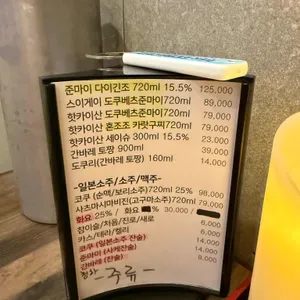 준마이 다이긴조 720ml 15.5% 125,000
스이게이 도쿠베츠준마이720ml 89,000
핫카이산 도쿠베츠준마이720ml 79,000
핫카이산 혼조조 카랏구찌720ml 79,000
핫카이산 세이슈 300ml 15.5% 23,000
간바레 토짱 900ml 39,000
도쿠리(간바레 토짱) 160ml 14,000
-일본소주/소주/맥주-
코쿠 (쌀/보리소주)720ml 25% 98,000
사츠마시마비진(고구마소주)720ml 79,000
화요 25% / 화요 30,000 /
참이슬/처음/진로/새로 6,000
카스/테라/켈리 6,000
코쿠 (일본소주 잔술) 14,000
준마이 (사케잔술) 14,000
간바레 (잔술) 9,000
- 주류 -